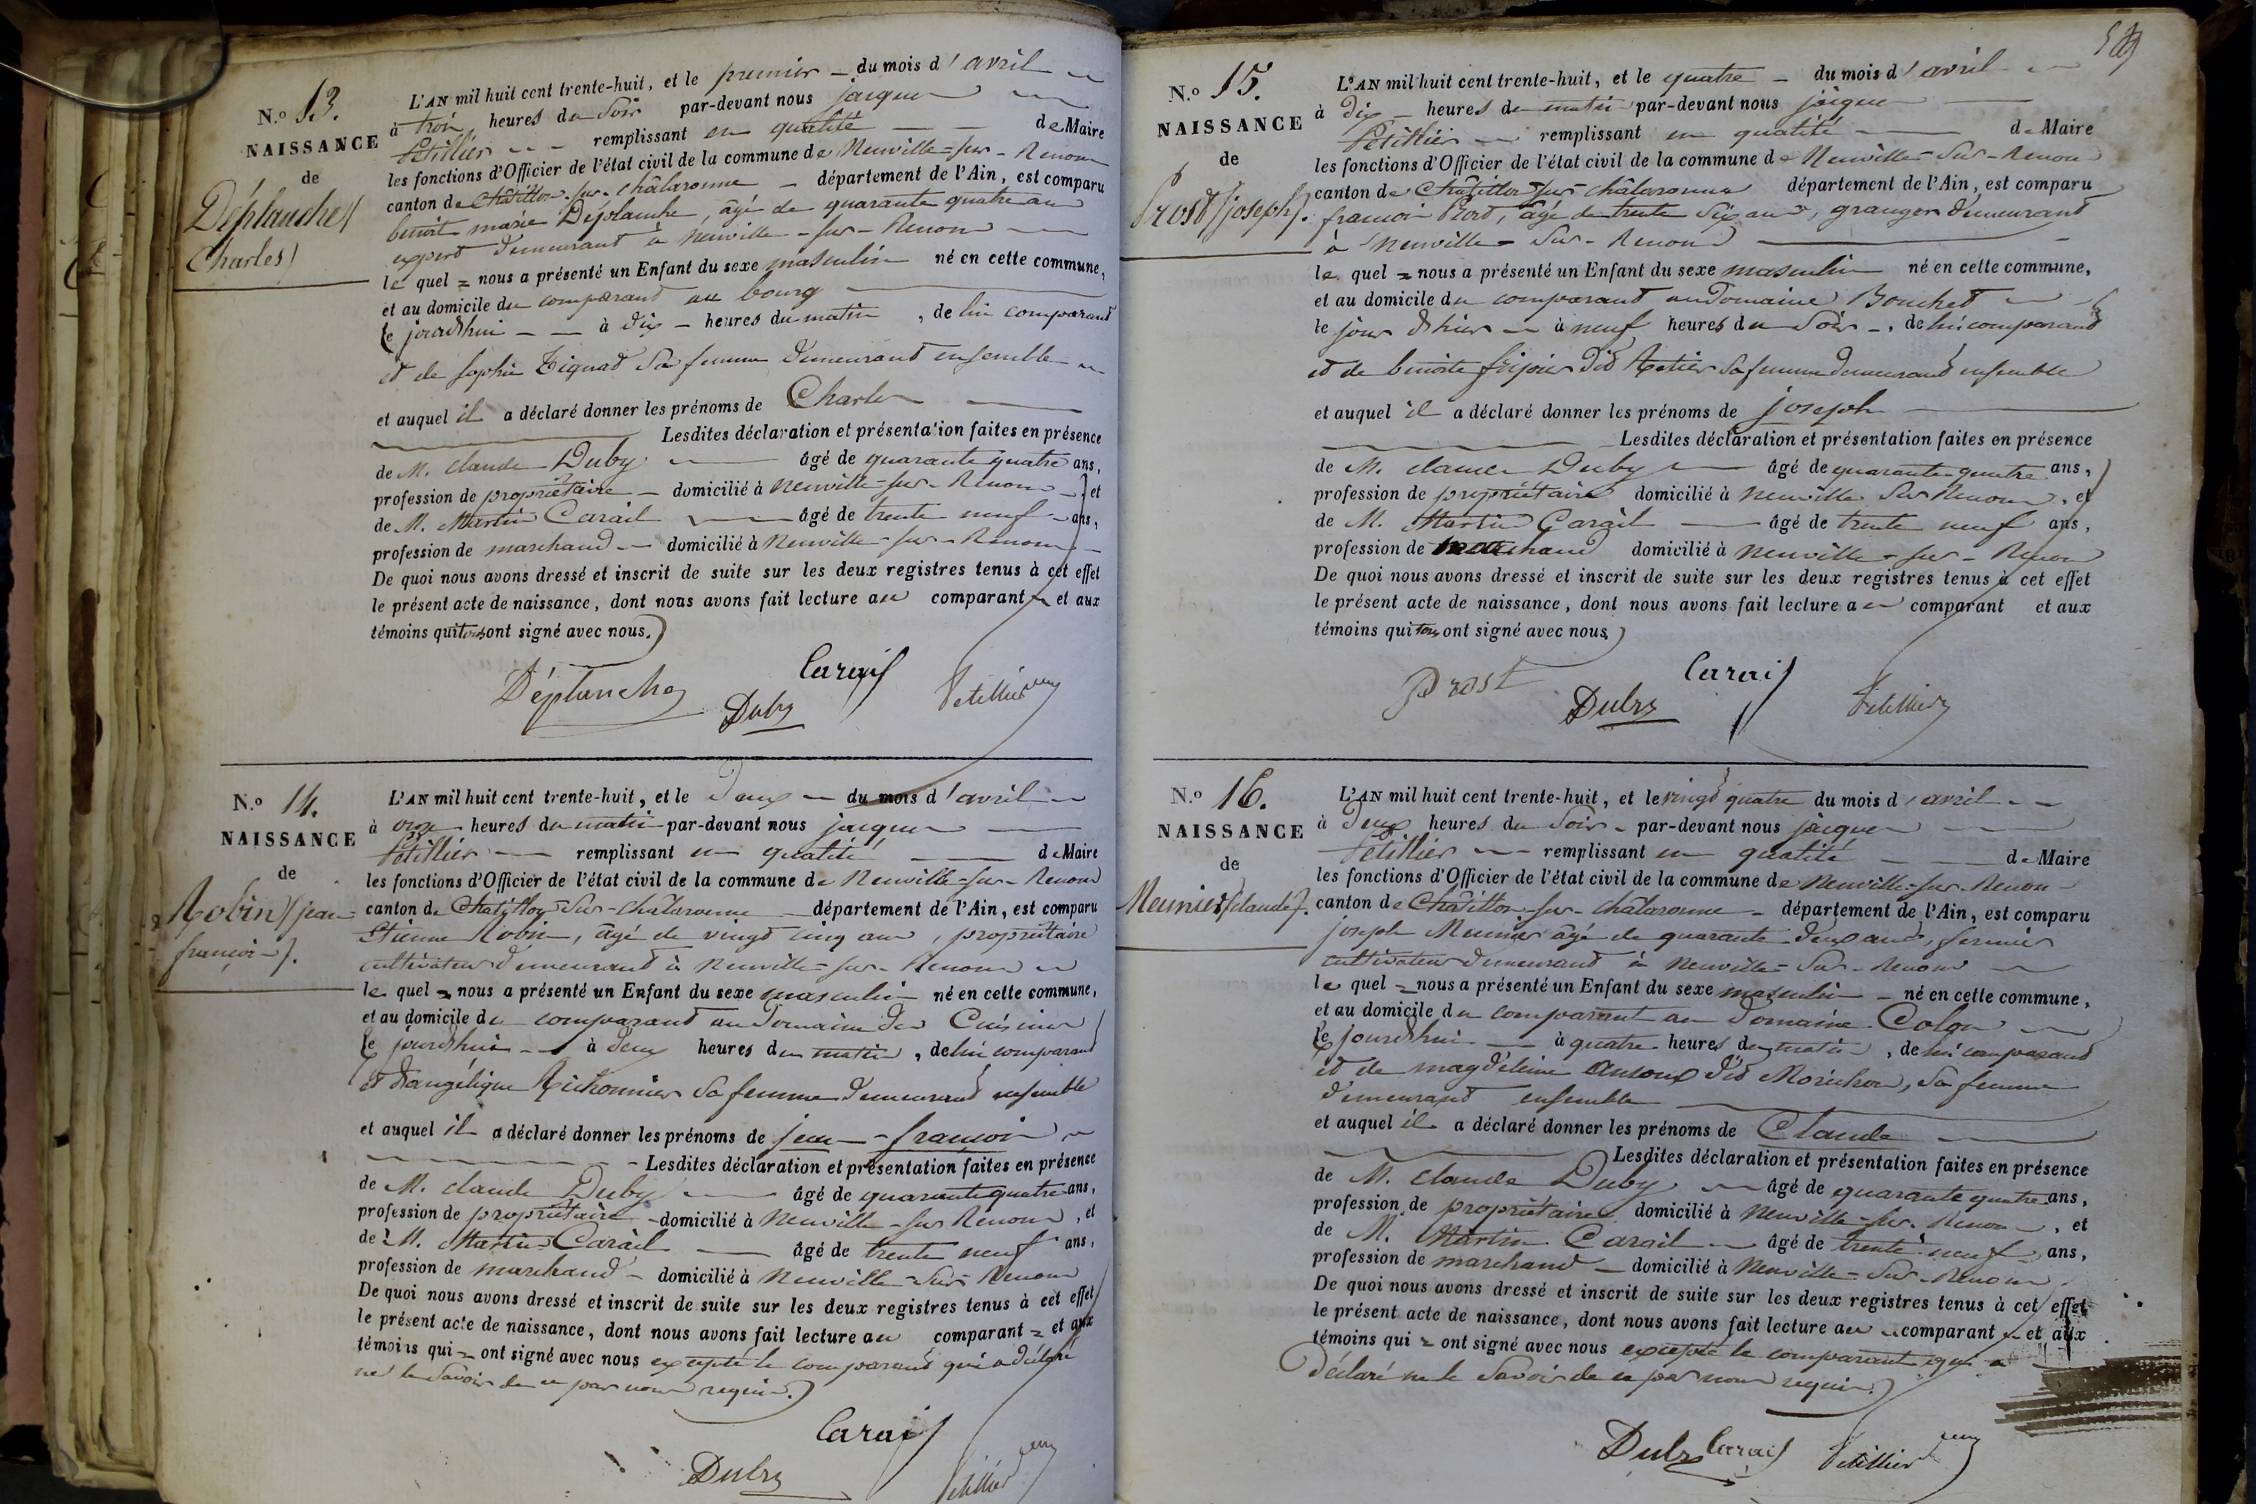 N.o 13.
NAISSANCE
de
Déplanche (
Charles)
L'AN mil huit cent trente-huit, et le premier du mois d'avril
à trois heures du soir par-devant nous jacques
Pétillier remplissant en qualité de Maire
les fonctions d'Officier de l'état civil de la commune de Neuville-sur-Renom
canton de Châtillon-sur-châlaronne département de l'Ain, est comparu
benoit marie Déplanche, âgé de quarante quatre ans
expert demeurant à neuville-sur-Renom
le quel = nous a présenté un Enfant du sexe masculin né en cette commune,
et au domicile du comparant au bourg
le jourdhui à dix heures du matin, de lui comparant
et de sophie Tiquad sa femme demeurant ensemble
et auquel il a déclaré donner les prénoms de Charles
Lesdites déclaration et présentation faites en présence
de M. claude Duby âgé de quarante quatre ans,
profession de propriétaire domicilié à neuville-sur-Renom et
de M. Martin Carail âgé de trente neuf ans,
profession de marchand domicilié à Neuville-sur-Renom
De quoi nous avons dressé et inscrit de suite sur les deux registres tenus à cet effet
le présent acte de naissance, dont nous avons fait lecture au comparant et aux
témoins qui tous ont signé avec nous.
Déplanche Carail
Duby Petillier
N.o 14.
NAISSANCE
de
Robin (jean
françois).
L'AN mil huit cent trente-huit, et le deux du mois d'avril
à onze heures du matin par-devant nous jacques
Pétillier remplissant en qualité de Maire
les fonctions d'Officier de l'état civil de la commune de Neuville-sur-Renom
canton de Châtillon-sur-châlaronne département de l'Ain, est comparu
Etienne Robin, âgé de vingt cinq ans, propriétaire
cultivateur demeurant à neuville-sur-Renom
le quel = nous a présenté un Enfant du sexe masculin né en cette commune,
et au domicile du comparant au domaine des Cuisines
le jourdhui à deux heures du matin, de lui comparant
et d'angélique Richonnier sa femme demeurant ensemble
et auquel il a déclaré donner les prénoms de jean-françois
Lesdites déclaration et présentation faites en présence
de M. claude Duby âgé de quarante quatre ans,
profession de propriétaire domicilié à Neuville-sur Renom, et
de M. Martin Carail âgé de trente neuf ans,
profession de marchand domicilié à Neuville-sur-Renom
De quoi nous avons dressé et inscrit de suite sur les deux registres tenus à cet effet
le présent acte de naissance, dont nous avons fait lecture au comparant = et aux
témoins qui = ont signé avec nous excepté le comparant qui a déclaré
ne le savoir de ce par nous requis.
Carail
Duby Petillier
N.o 15.
NAISSANCE
de
Prost (joseph).
L'AN mil huit cent trente-huit, et le quatre du mois d'avril
à dix heures du matin par-devant nous jacques
Pétillier remplissant en qualité de Maire
les fonctions d'Officier de l'état civil de la commune de Neuville-sur-Renom
canton de Châtillon-sur-châlaronne département de l'Ain, est comparu
françois Prost, âgé de trente six ans, granger demeurant
à Neuville-sur-Renom
le quel = nous a présenté un Enfant du sexe masculin né en cette commune,
et au domicile du comparant au domaine Bouchet
le jour d'hier à neuf heures du soir, de lui comparant
et de benoite frijoies dit Retier sa femme demeurant ensemble
et auquel il a déclaré donner les prénoms de joseph
Lesdites déclaration et présentation faites en présence
de M. claude Duby âgé de quarante quatre ans,
profession de propriétaire domicilié à neuville sur Renom, et
de M. Martin Carail âgé de trente neuf ans,
profession de marchand domicilié à neuville-sur-Renom
De quoi nous avons dressé et inscrit de suite sur les deux registres tenus à cet effet
le présent acte de naissance, dont nous avons fait lecture au comparant et aux
témoins qui tous ont signé avec nous.
Prost Carail
Duby Petillier
N.o 16.
NAISSANCE
de
Meunier (claude).
L'AN mil huit cent trente-huit, et le vingt quatre du mois d'avril
à deux heures du soir par-devant nous jacques
Pétillier remplissant en qualité de Maire
les fonctions d'Officier de l'état civil de la commune de Neuville-sur-Renom
canton de Châtillon-sur-châlaronne département de l'Ain, est comparu
joseph Meunier âgé de quarante deux ans, fermier
cultivateur demeurant à neuville-sur-Renom
le quel = nous a présenté un Enfant du sexe masculin né en cette commune,
et au domicile du comparant au domaine Colon
le jourdhui à quatre heures du matin, de lui comparant
et de magdeleine ansoux dit Morichon, sa femme
demeurant ensemble
et auquel il a déclaré donner les prénoms de Claude
Lesdites déclaration et présentation faites en présence
de M. claude Duby âgé de quarante quatre ans,
profession de propriétaire domicilié à Neuville-sur-Renom, et
de M. Martin Carail âgé de trente neuf ans,
profession de marchand domicilié à Neuville-sur-Renom
De quoi nous avons dressé et inscrit de suite sur les deux registres tenus à cet effet
le présent acte de naissance, dont nous avons fait lecture au comparant et aux
témoins qui = ont signé avec nous excepté le comparant qui a
déclaré ne le savoir de ce par nous requis.
Duby Carail Petillier